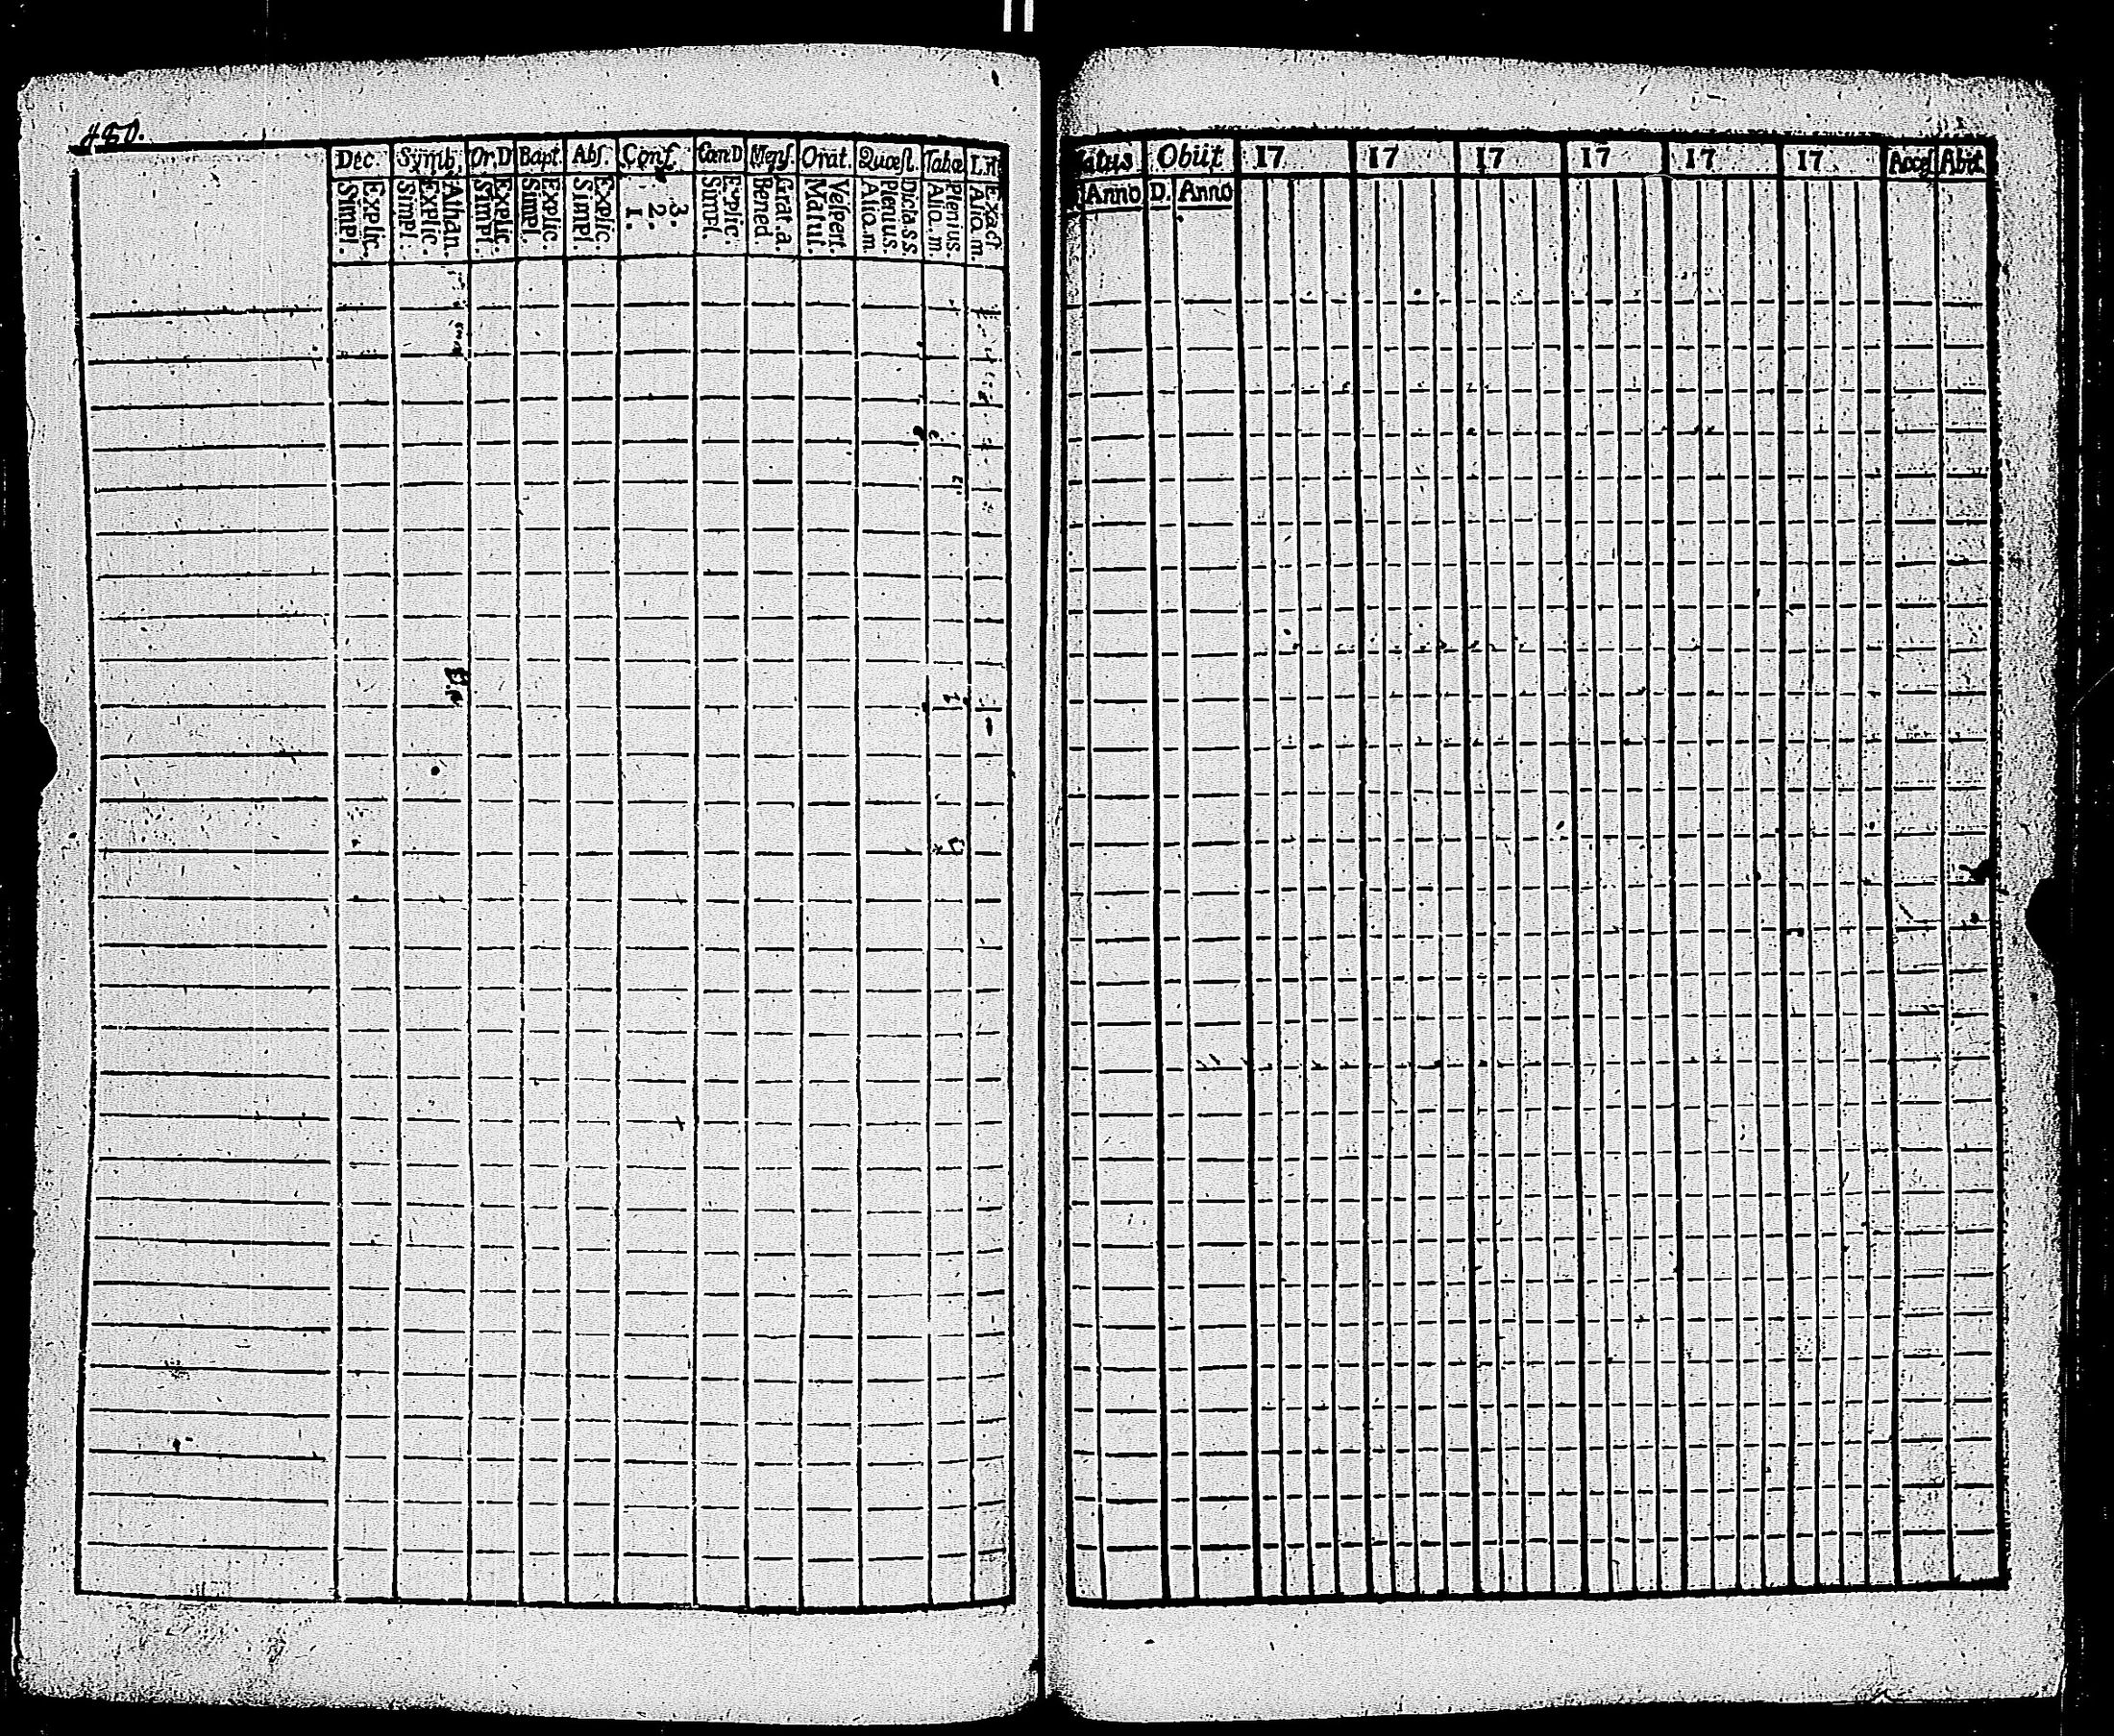 480.
Dec. Symb. Or.D Bapt. Abſ. Conf. CœnD Menſ. Orat. Quæſt. Tabæ L.n
Simpl. Explic. Simpl. Explic. Athan. Simpl. Explic. Simpl. Explic. Simpl. Explic. 1. 2. 3. Simpl. Explic. Bened. Grat.a. Matut. Veſpert. Alio.m. Plenius. Dicta.s.s. Alio.m. Plenius. Alio.m. Exact
atus Obiit 17 17 17 17 17 17 Acceſ Abiit
Anno D. Anno